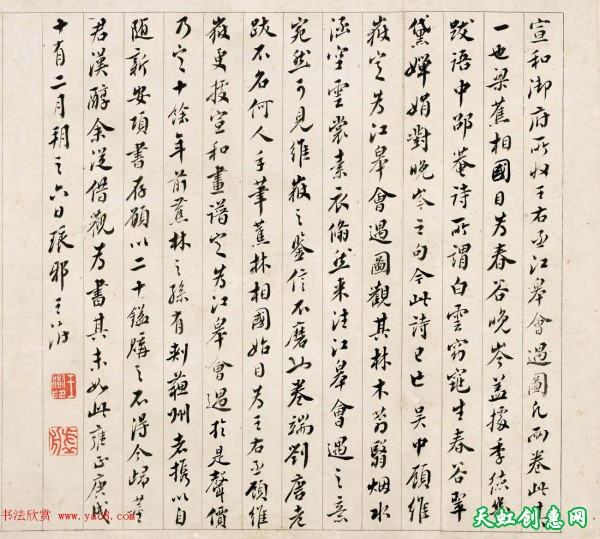 宣和御府所收王右丞江皋會遇圖凡兩卷此其
一也梁蕉相國目為春谷晚岑蓋據季
跋語中邵菴詩所謂白雲窈窕生春谷翠
黛嬋娟對晚岑之句今此詩已亡吳中顧維
嶽定為江皋會遇圖觀其林木蓊翳烟水
涵空雲裳素衣翛然來往江皋會遇之意
宛然可見維嶽之鑒信不磨山卷端劉唐老
跋不名何人手筆蕉林相國始目為王右丞顧維
嶽更援宣和畫譜定為江皋會遇於是聲價
乃定十餘年前蕉林之孫有刺蘇州者携以自
随新安項書存願以二十鎰購之不得今歸
君漢醇余從借觀為書其末如此雍正庚戌
十有二月朔之六日琅邪王澍
书法欣赏 www.yac8.com
天虹创意网